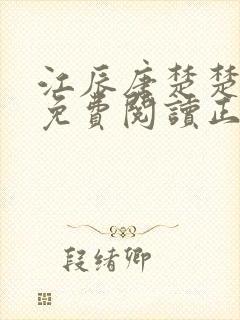 江辰唐楚楚
免費閱讀正
段绪卿